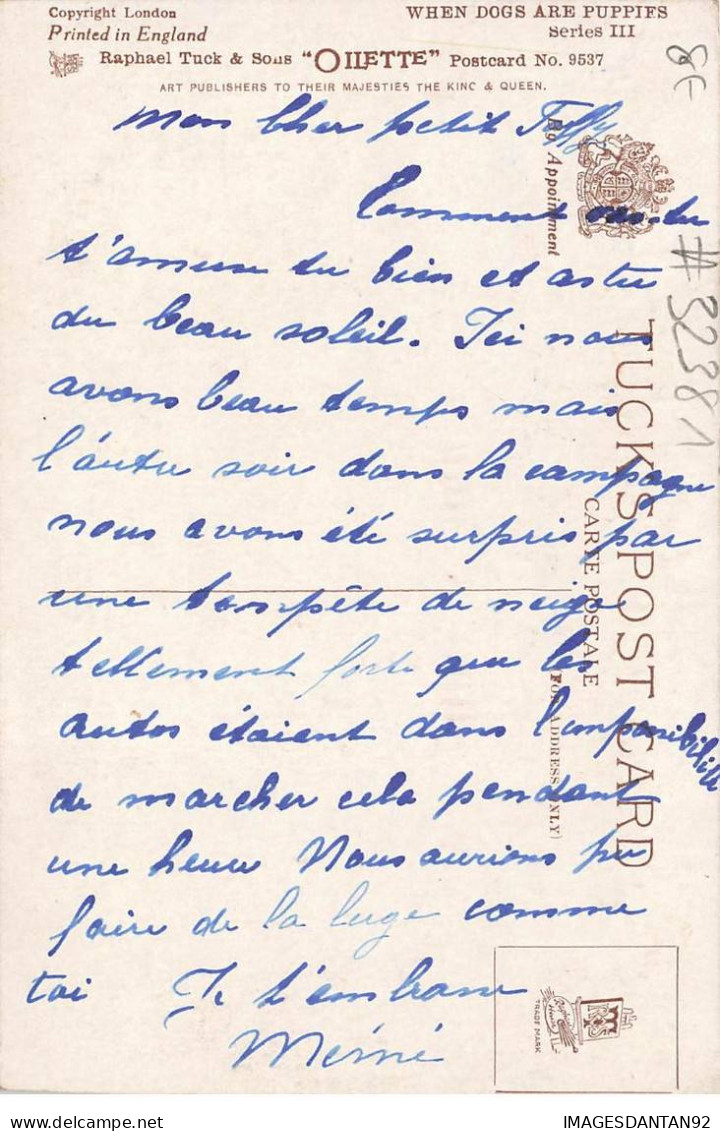 Copyright London
Printed in England
WHEN DOGS ARE PUPPIES
Series III
Raphael Tuck & Sons "OILETTE" Postcard No. 9537
ART PUBLISHERS TO THEIR MAJESTIES THE KING & QUEEN.
Mon Cher petit Taffy
Comment vas-tu
t'amuse tu bien et as tu
du beau soleil. Ici nous
avons beau temps mais
l'autre soir dans la campagne
nous avons été surpris par
une tempête de neige
tellement forte que les
autos étaient dans l'impossibilité
de marcher cela pendant
une heure Nous aurions pu
faire de la luge comme
toi Je t'embrasse
Mémé
By Appointment
TUCK'S POST CARD
CARTE POSTALE
(FOR ADDRESS ONLY)
8€
#32381
TRADE MARK
IMAGESDANTAN92